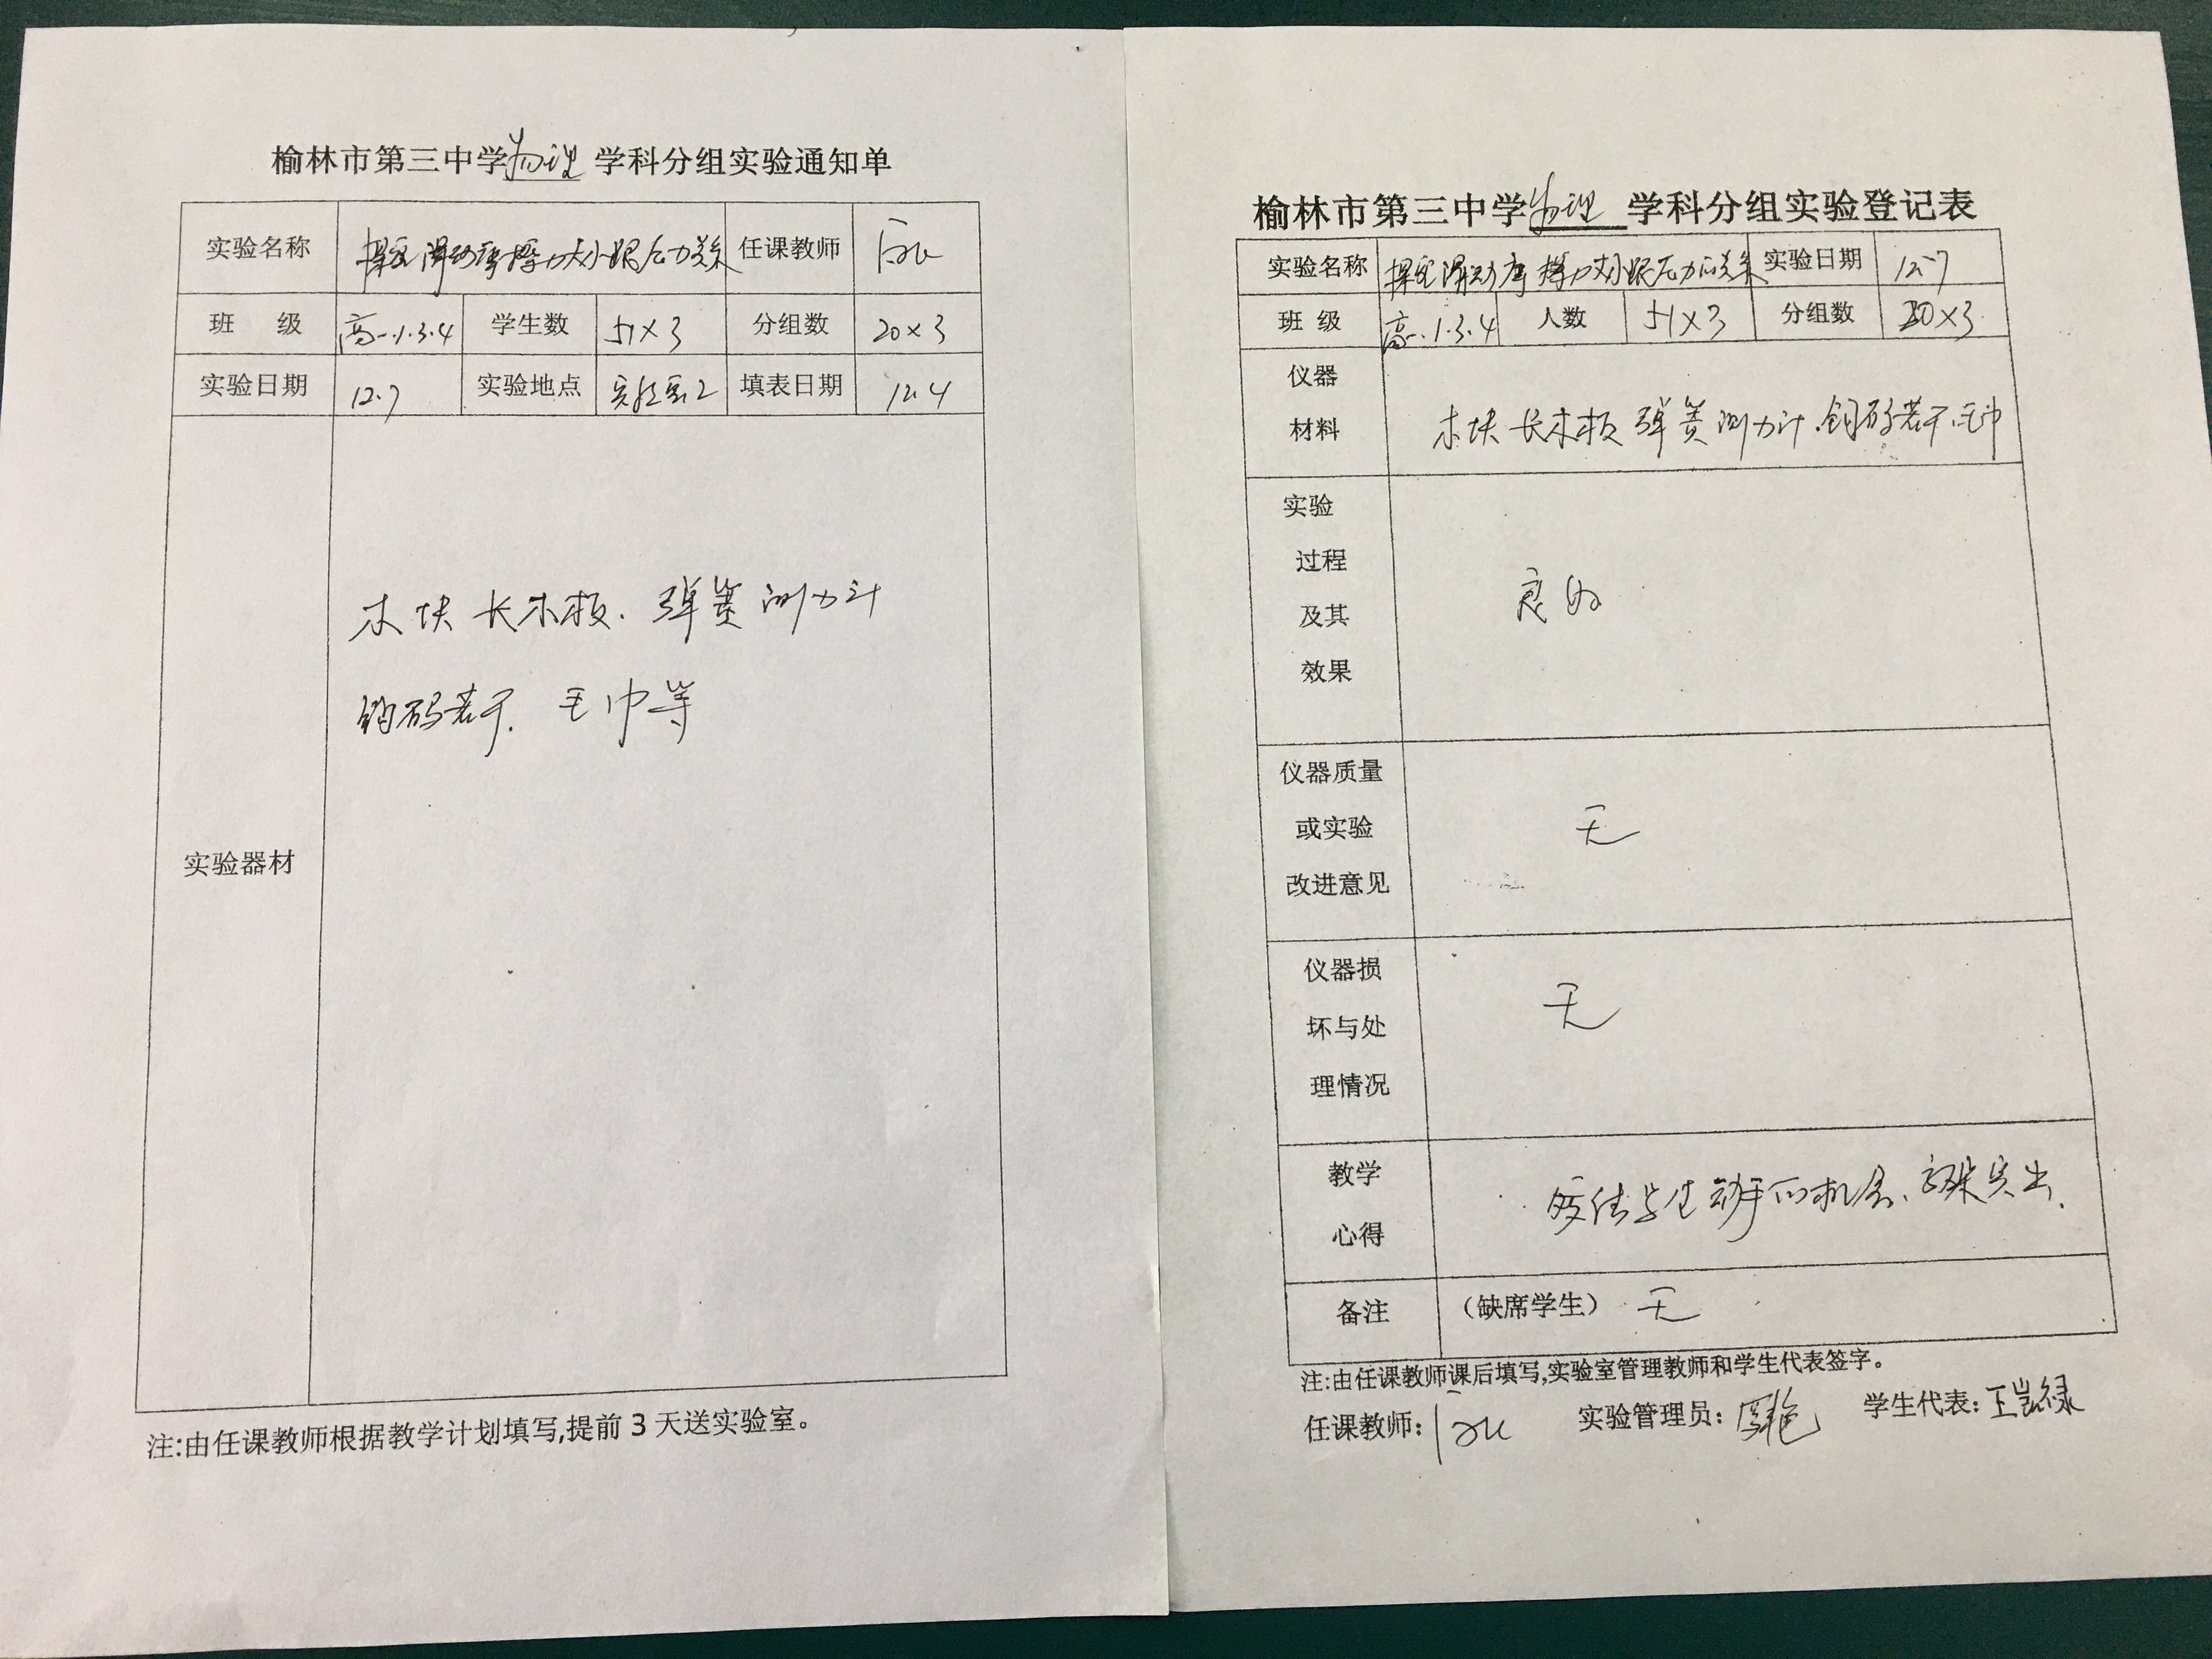 榆林市第三中学物理 学科分组实验通知单
实验名称 探究滑动摩擦力大小跟压力关系 任课教师
班 级 高一.1.3.4 学生数 51×3 分组数 20×3
实验日期 12.7 实验地点 实验室2 填表日期 12.4
实验器材
木块 长木板. 弹簧测力计
钩码若干. 毛巾等
注:由任课教师根据教学计划填写,提前3天送实验室。
榆林市第三中学物理 学科分组实验登记表
实验名称 探究滑动摩擦力大小跟压力的关系 实验日期 12.7
班 级 高一.1.3.4 人数 51×3 分组数 20×3
仪器
材料
木块 长木板 弹簧测力计.钩码若干.毛巾
实验
过程
及其
效果
良好
仪器质量
或实验
改进意见
无
仪器损
坏与处
理情况
无
教学
心得
学生动手的机会、效果突出.
备注 （缺席学生） 无
注:由任课教师课后填写,实验室管理教师和学生代表签字。
任课教师: 实验管理员: 学生代表: 王凯禄